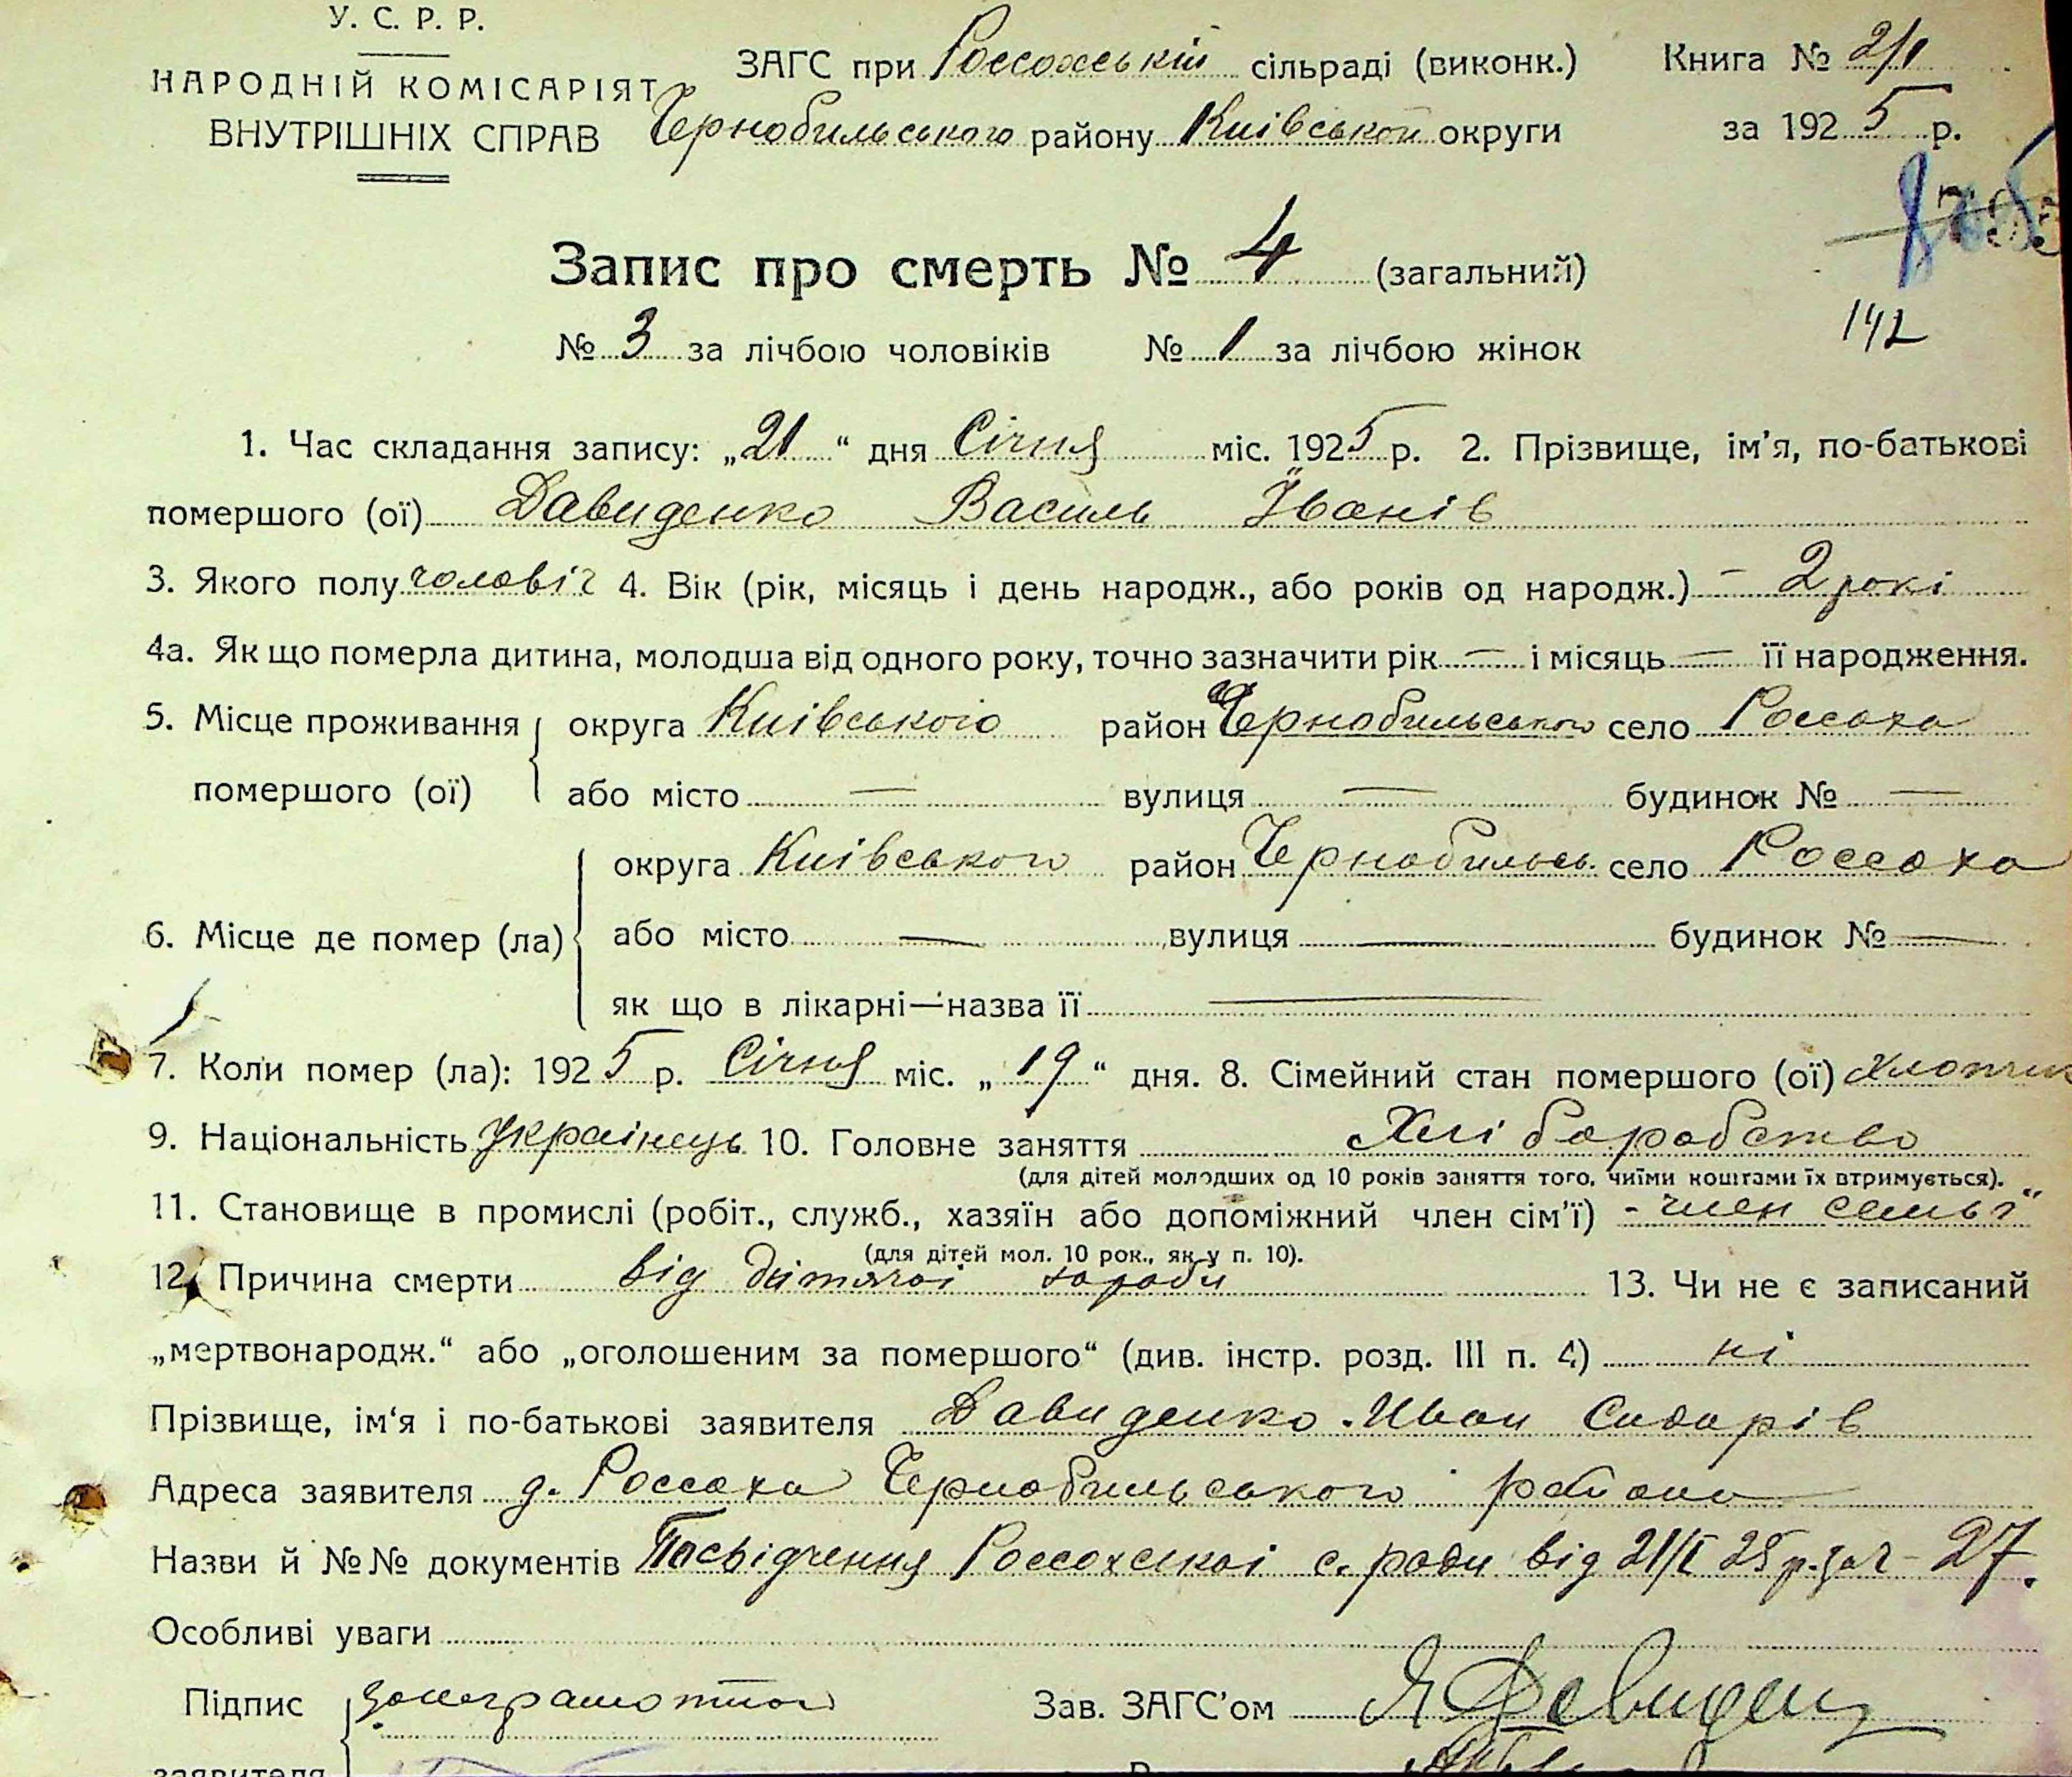 У. С. Р. Р.
НАРОДНІЙ КОМІСАРІЯТ
ВНУТРІШНІХ СПРАВ
ЗАГС при Россохській сільраді (виконк.)
Чернобильського району Київської округи
Книга № 2/1
за 1925 р.
Запис про смерть № 4 (загальний)
№ 3 за лічбою чоловіків № 1 за лічбою жінок
142
1. Час складання запису: „21“ дня Січня міс. 1925 р. 2. Прізвище, ім'я, по-батькові
помершого (ої) Давиденко Василь Іванів
3. Якого полу чоловіч 4. Вік (рік, місяць і день народж., або років од народж.) – 2 рокі
4а. Як що померла дитина, молодша від одного року, точно зазначити рік — і місяць — її народження.
5. Місце проживання помершого (ої)
округа Київського район Чернобильського село Россоха
або місто — вулиця — будинок № —
6. Місце де помер (ла)
округа Київського район Чернобильсь. село Россоха
або місто — вулиця — будинок № —
як що в лікарні—назва її —
7. Коли помер (ла): 1925 р. Січня міс. „19“ дня. 8. Сімейний стан помершого (ої) хлопчик
9. Національність Українець 10. Головне заняття Хліборобство
(для дітей молодших од 10 років заняття того, чиїми коштами їх втримується).
11. Становище в промислі (робіт., служб., хазяїн або допоміжний член сім'ї) - член семьї
(для дітей мол. 10 рок., як у п. 10).
12. Причина смерти від дитячої хороби 13. Чи не є записаний
„мертвонародж.“ або „оголошеним за помершого“ (див. інстр. розд. III п. 4) ні
Прізвище, ім'я і по-батькові заявителя Давиденко Иван Сидорів
Адреса заявителя д. Россоха Чернобильського району
Назви й №№ документів Посвідчення Россохської с. ради від 21/I 25 р. за ч - 27.
Особливі уваги
Підпис заявителя
за неграмотного
Зав. ЗАГС'ом